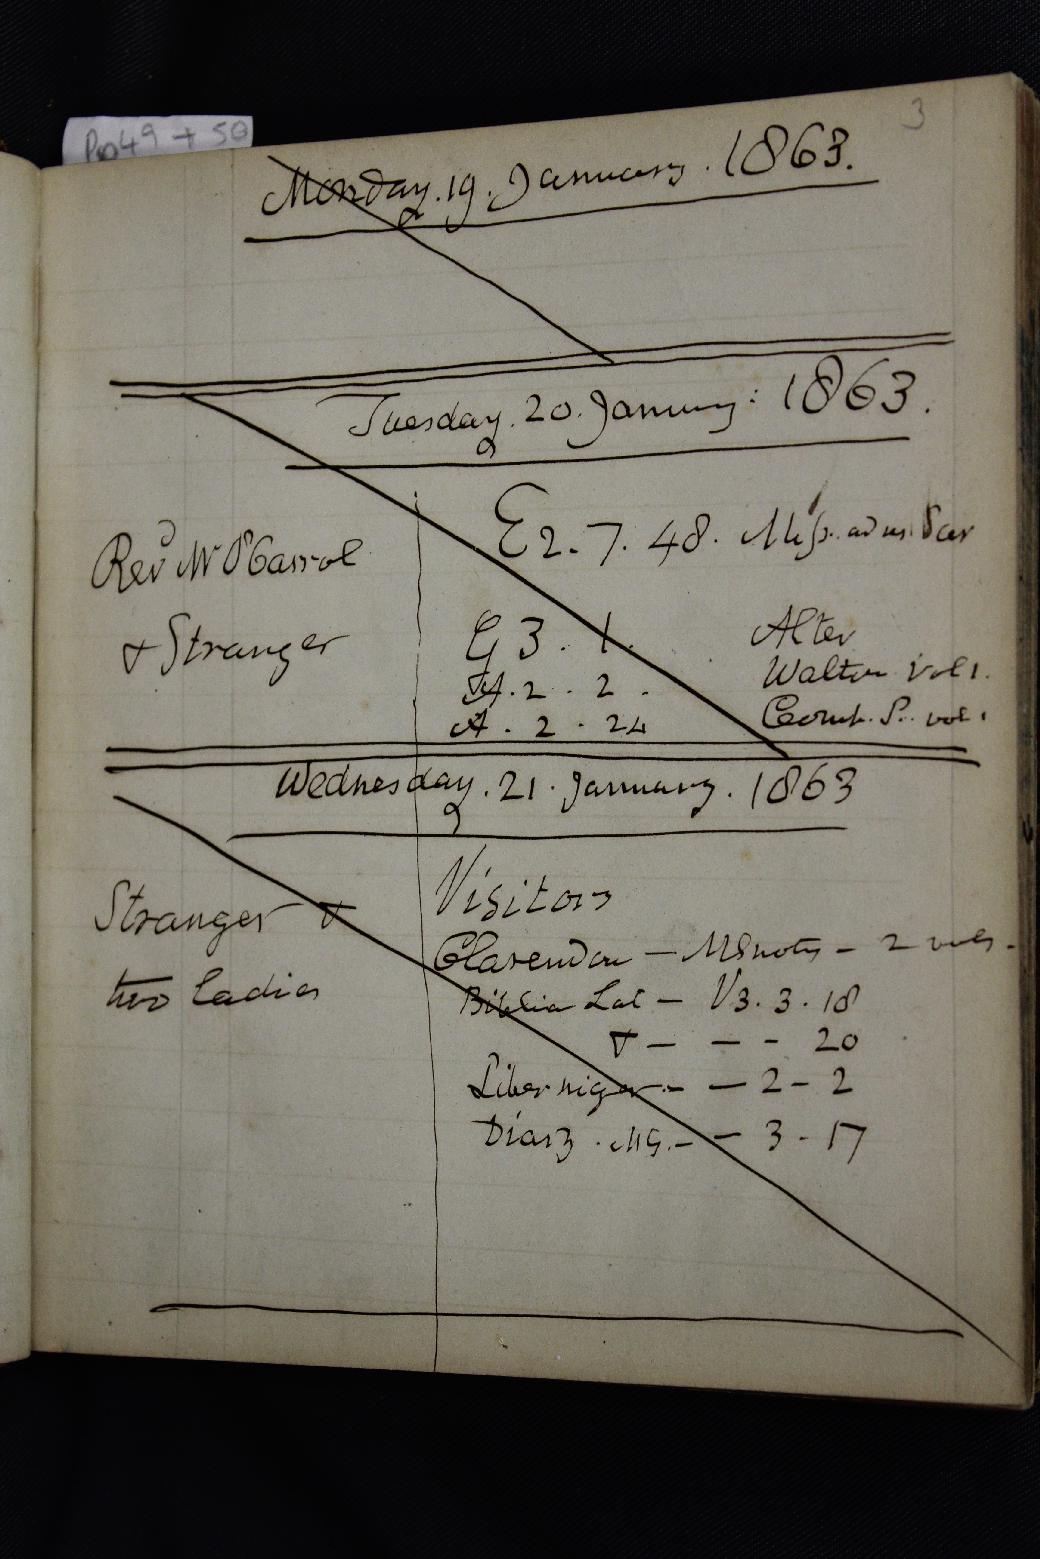 3
Pp 49 + 50
Monday. 19. January. 1863.
Tuesday. 20. January: 1863.
Revd Mr O'Carrol
& Stranger
E2. 7. 48. Miss. ad us. Sar
G 3. 1. Alter
A. 2. 2. Walton vol 1.
A. 2. 24 Comp. P. vol.
Wednesday. 21. January. 1863
Stranger &
two Ladies
Visitors
Clarendon — MS notes — 2 vols.
Biblia Lat — V3. 3. 18
& — — - 20
Liber niger. — — 2 - 2
Diary. MS. — — 3 - 17